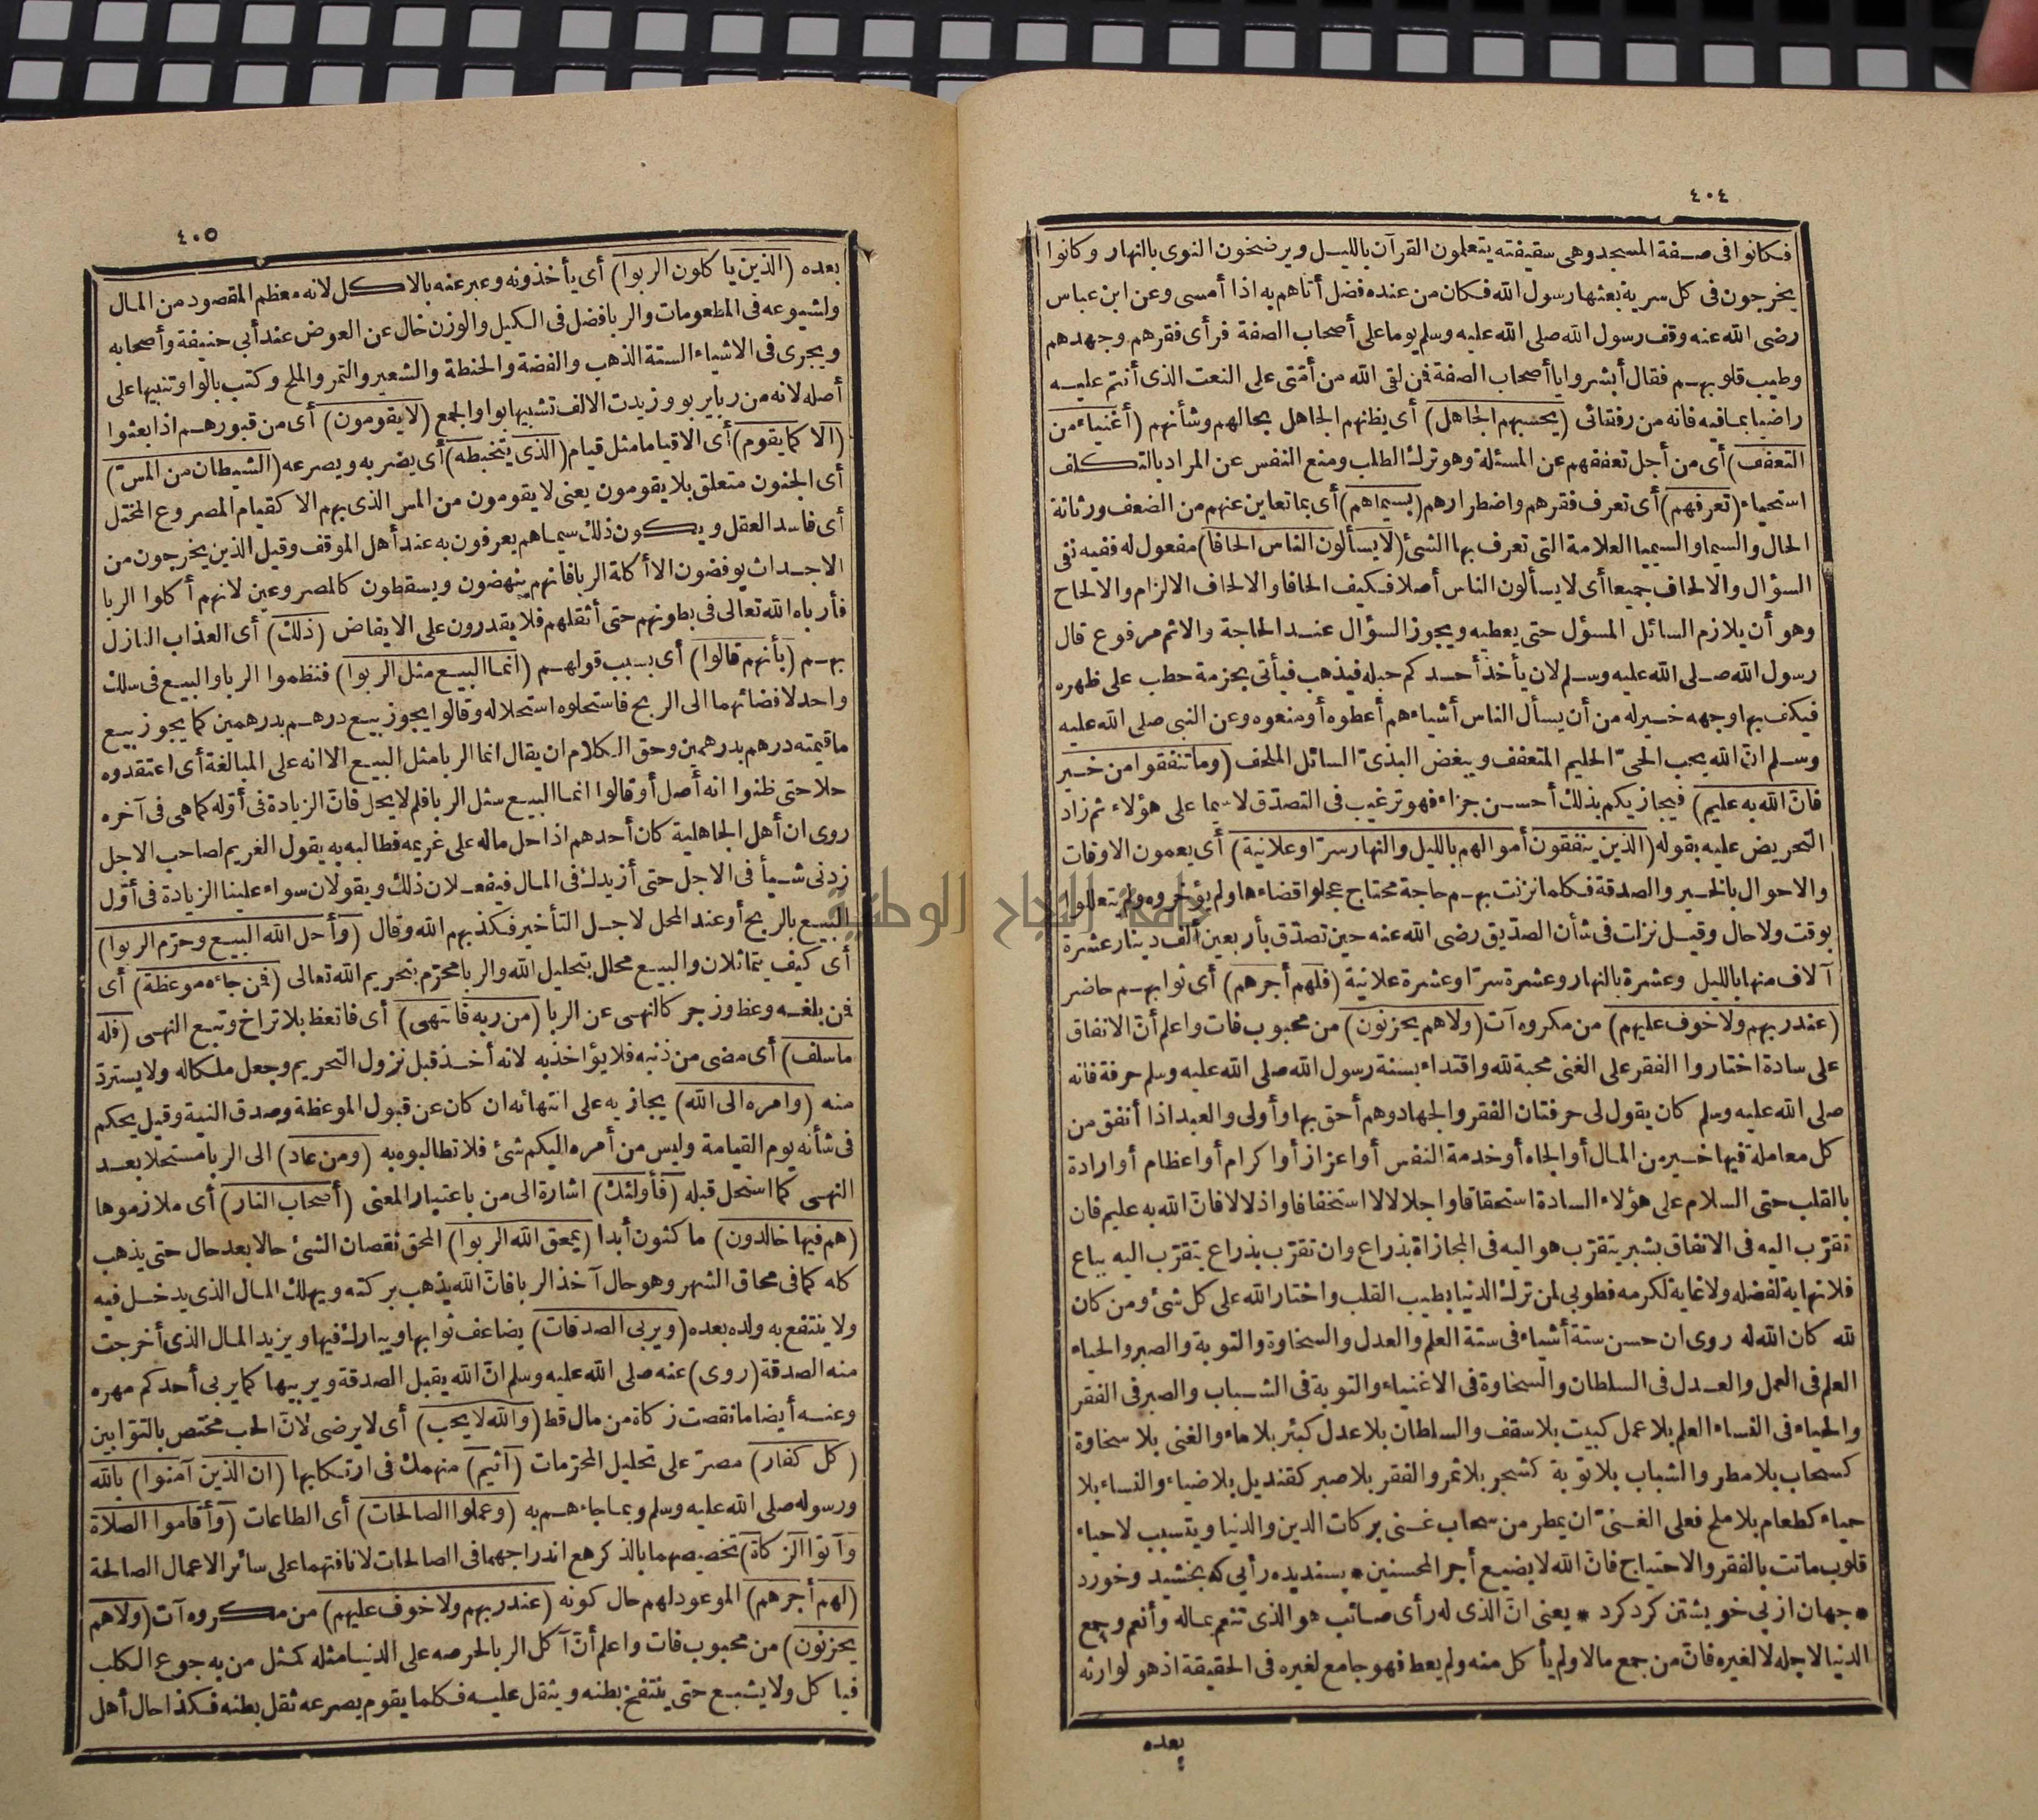 ٤٠٤
فكانوا فى صفة المسجد وهى سقيفته يتعلمون القرآن بالليل ويرضخون النوى بالنهار وكانوا
يخرجون فى كل سرية بعثها رسول الله فكان من عنده فضل أتاهم به اذا أمسى وعن ابن عباس
رضى الله عنه وقف رسول الله صلى الله عليه وسلم يوما على أصحاب الصفة فرأى فقرهم وجهدهم
وطيب قلوبهم فقال أبشروا يا أصحاب الصفة فمن لقى الله من أمّتى على النعت الذى أنتم عليه
راضيا بما فيه فانه من رفقائى (يحسبهم الجاهل) أى يظنهم الجاهل بحالهم وشأنهم (أغنياء من
التعفف) أى من أجل تعففهم عن المسئلة وهو ترك الطلب ومنع النفس عن المراد بالتكلف
استحياء (تعرفهم) أى تعرف فقرهم واضطرارهم (بسيماهم) أى بما تعاين عنهم من الضعف ورثاثة
الحال والسيما والسيميا العلامة التى تعرف بها الشئ (لا يسألون الناس الحافا) مفعول له ففيه نفى
السؤال والالحاف جميعا أى لا يسألون الناس أصلا فكيف الحافا والالحاف الالزام والالحاح
وهو أن يلازم السائل المسؤل حتى يعطيه ويجوز السؤال عند الحاجة والاثم مرفوع قال
رسول الله صلى الله عليه وسلم لان يأخذ أحدكم حبله فيذهب فيأتى بحزمة حطب على ظهره
فيكف بها وجهه خير له من أن يسأل الناس أشياءهم أعطوه أو منعوه وعن النبى صلى الله عليه
وسلم انّ الله يحب الحىّ الحليم المتعفف ويبغض البذىّ السائل الملحف (وما تنفقوا من خير
فانّ الله به عليم) فيجازيكم بذلك أحسن جزاء فهو ترغيب فى التصدّق لا سيما على هؤلاء ثم زاد
التحريض عليه بقوله (الذين ينفقون أموالهم بالليل والنهار سرّا وعلانية) أى يعمون الاوقات
والاحوال بالخير والصدقة فكلما نزلت بهم حاجة محتاج عجلوا قضاءها ولم يؤخروه ولم يتعللوا
بوقت ولا حال وقيل نزلت فى شأن الصدّيق رضى الله عنه حين تصدّق بأربعين ألف دينار عشرة
آلاف منها بالليل وعشرة بالنهار وعشرة سرّا وعشرة علانية (فلهم أجرهم) أى ثوابهم حاضر
(عند ربهم ولا خوف عليهم) من مكروه آت (ولا هم يحزنون) من محبوب فات واعلم أنّ الانفاق
على سادة اختاروا الفقر على الغنى محبة لله واقتداء بسنة رسول الله صلى الله عليه وسلم حرفة فانه
صلى الله عليه وسلم كان يقول لى حرفتان الفقر والجهاد وهم أحق بها وأولى والعبد اذا أنفق من
كل معاملة فيها خير من المال أو الجاه أو خدمة النفس أو اعزاز أو اكرام أو اعظام أو ارادة
بالقلب حتى السلام على هؤلاء السادة استحقاقا واجلالا لا استخفافا واذلالا فانّ الله به عليم فان
تقرّب اليه فى الانفاق بشبر يتقرّب هو اليه فى المجازاة بذراع وان تقرّب بذراع يتقرّب اليه بباع
فلا نهاية لفضله ولا غاية لكرمه فطوبى لمن ترك الدنيا بطيب القلب واختار الله على كل شئ ومن كان
لله كان الله له روى ان حسن ستة أشياء فى ستة العلم والعدل والسخاوة والتوبة والصبر والحياء
العلم فى العمل والعدل فى السلطان والسخاوة فى الاغنياء والتوبة فى الشباب والصبر فى الفقر
والحياء فى النساء العلم بلا عمل كبيت بلا سقف والسلطان بلا عدل كبئر بلا ماء والغنى بلا سخاوة
كسحاب بلا مطر والشباب بلا توبة كشجر بلا ثمر والفقر بلا صبر كقنديل بلا ضياء والنساء بلا
حياء كطعام بلا ملح فعلى الغنىّ ان يمطر من سحاب غنى بركات الدين والدنيا ويتسبب لاحياء
قلوب ماتت بالفقر والاحتياج فانّ الله لا يضيع أجر المحسنين * پسنديده رأيى كه بخشيد وخورد
* جهان از پى خويشتن كرد كرد * يعنى انّ الذى له رأى صائب هو الذى تنعم بماله وأنعم وجمع
الدنيا لاجله لا لغيره فانّ من جمع مالا ولم يأكل منه ولم يعط فهو جامع لغيره فى الحقيقة اذ هو لوارثه
بعده
٤٠٥
بعده (الذين يأكلون الربوا) أى يأخذونه وعبر عنه بالاكل لانه معظم المقصود من المال
ولشيوعه فى المطعومات والربا فضل فى الكيل والوزن خال عن العوض عند أبى حنيفة وأصحابه
ويجرى فى الاشياء الستة الذهب والفضة والحنطة والشعير والتمر والملح وكتب بالواو تنبيها على
أصله لانه من ربا يربو وزيدت الالف تشبيها بواو الجمع (لا يقومون) أى من قبورهم اذا بعثوا
(الا كما يقوم) أى الا قياما مثل قيام (الذى يتخبطه) أى يضربه ويصرعه (الشيطان من المسّ)
أى الجنون متعلق بلا يقومون يعنى لا يقومون من المس الذى بهم الا كقيام المصروع المختل
أى فاسد العقل ويكون ذلك سيماهم يعرفون به عند أهل الموقف وقيل الذين يخرجون من
الاجداث يوفضون الا أكلة الربا فانهم ينهضون ويسقطون كالمصروعين لانهم أكلوا الربا
فأرباه الله تعالى فى بطونهم حتى أثقلهم فلا يقدرون على الايفاض (ذلك) أى العذاب النازل
بهم (بأنهم قالوا) أى بسبب قولهم (انما البيع مثل الربوا) فنظموا الربا والبيع فى سلك
واحد لافضائهما الى الربح فاستحلوه استحلاله وقالوا يجوز بيع درهم بدرهمين كما يجوز بيع
ما قيمته درهم بدرهمين وحق الكلام ان يقال انما الربا مثل البيع الا انه على المبالغة أى اعتقدوه
حلا حتى ظنوا انه أصل أو قالوا انما البيع مثل الربا فلم لا يحل فانّ الزيادة فى أوّله كما هى فى آخره
روى ان أهل الجاهلية كان أحدهم اذا حل ماله على غريمه فطالبه به يقول الغريم لصاحب الاجل
زدنى شيأ فى الاجل حتى أزيدك فى المال فيفعلان ذلك ويقولان سواء علينا الزيادة فى أوّل
البيع بالربح أو عند المحل لاجل التأخير فكذبهم الله وقال (وأحل الله البيع وحرّم الربوا)
أى كيف يتماثلان والبيع محلل بتحليل الله والربا محرّم بتحريم الله تعالى (فمن جاءه موعظة) أى
فمن بلغه وعظ وزجر كالنهى عن الربا (من ربه فانتهى) أى فاتعظ بلا تراخ وتبع النهى (فله
ما سلف) أى مضى من ذنبه فلا يؤاخذ به لانه أخذ قبل نزول التحريم وجعل ملكا له ولا يستردّ
منه (وامره الى الله) يجازيه على انتهائه ان كان عن قبول الموعظة وصدق النية وقيل يحكم
فى شأنه يوم القيامة وليس من أمره اليكم شئ فلا تطالبوه به (ومن عاد) الى الربا مستحلا بعد
النهى كما استحل قبله (فأولئك) اشارة الى من باعتبار المعنى (أصحاب النار) أى ملازموها
(هم فيها خالدون) ماكثون أبدا (يمحق الله الربوا) المحق نقصان الشئ حالا بعد حال حتى يذهب
كله كما فى محاق الشهر وهو حال آخذ الربا فانّ الله يذهب بركته ويهلك المال الذى يدخل فيه
ولا ينتفع به ولده بعده (ويربى الصدقات) يضاعف ثوابها ويبارك فيها ويزيد المال الذى أخرجت
منه الصدقة (روى) عنه صلى الله عليه وسلم انّ الله يقبل الصدقة ويربيها كما يربى أحدكم مهره
وعنه أيضا ما نقصت زكاة من مال قط (والله لا يحب) أى لا يرضى لانّ الحب مختص بالتوّابين
(كل كفار) مصرّ على تحليل المحرّمات (أثيم) منهمك فى ارتكابها (ان الذين آمنوا) بالله
ورسوله صلى الله عليه وسلم وبما جاءهم به (وعملوا الصالحات) أى الطاعات (وأقاموا الصلاة
وآتوا الزكاة) تخصيصهما بالذكر مع اندراجهما فى الصالحات لانافتهما على سائر الاعمال الصالحة
(لهم أجرهم) الموعود لهم حال كونه (عند ربهم ولا خوف عليهم) من مكروه آت (ولا هم
يحزنون) من محبوب فات واعلم أنّ آكل الربا لحرصه على الدنيا مثله كمثل من به جوع الكلب
فيأكل ولا يشبع حتى ينتفخ بطنه ويثقل عليه فكلما يقوم يصرعه ثقل بطنه فكذا حال أهل
جامعة النجاح الوطنية